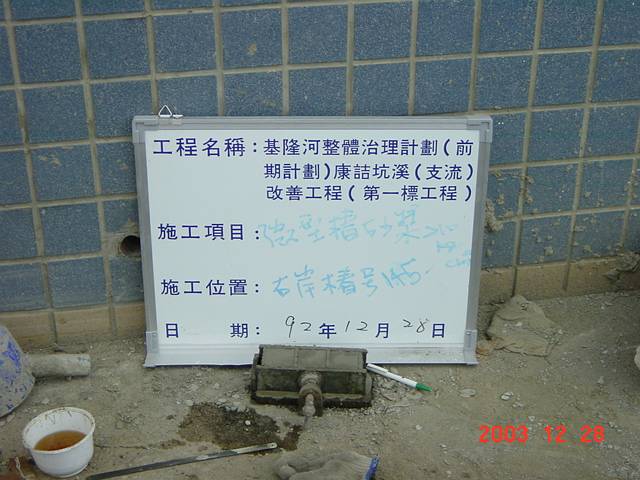 工程名稱：基隆河整體治理計劃（前
期計劃）康誥坑溪（支流）
改善工程（第一標工程）
施工項目：微型樁砂漿
施工位置：右岸樁号
日期：92年12月28日
2003 12 28